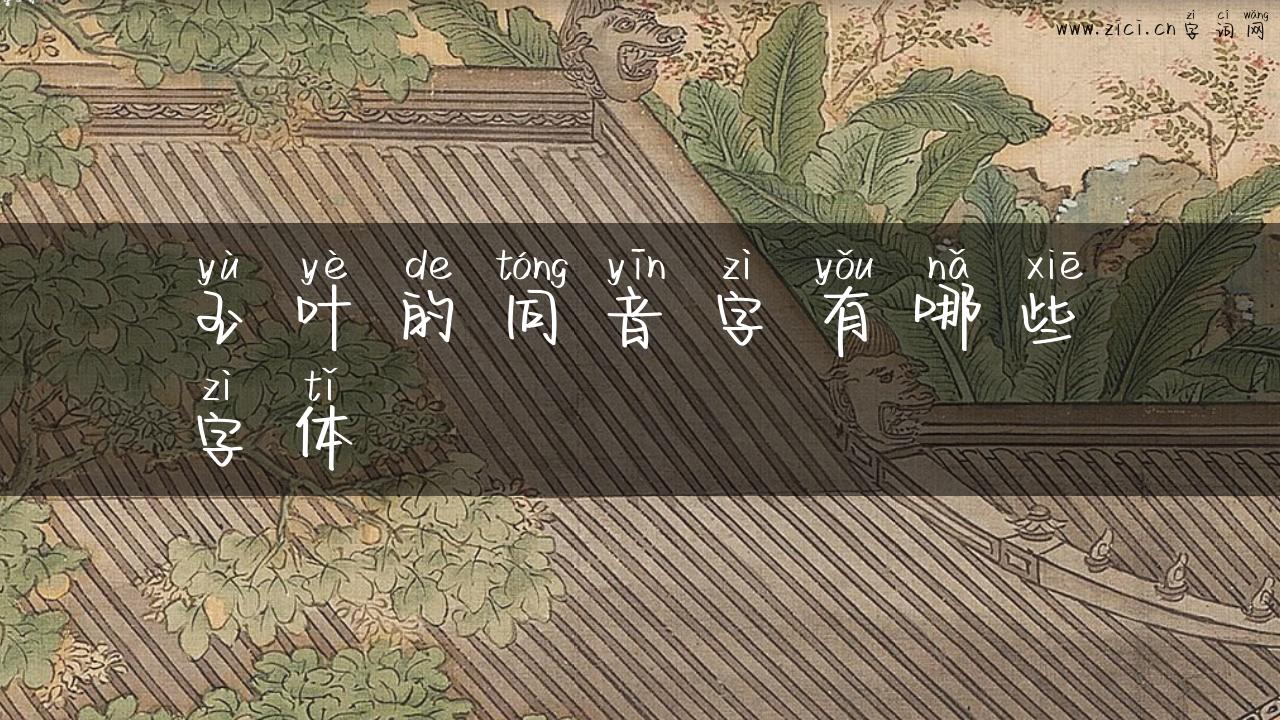 zì cí wǎng
www.zici.cn 字词网
yù yè de tóng yīn zì yǒu nǎ xiē
玉叶的同音字有哪些
zì tǐ
字体